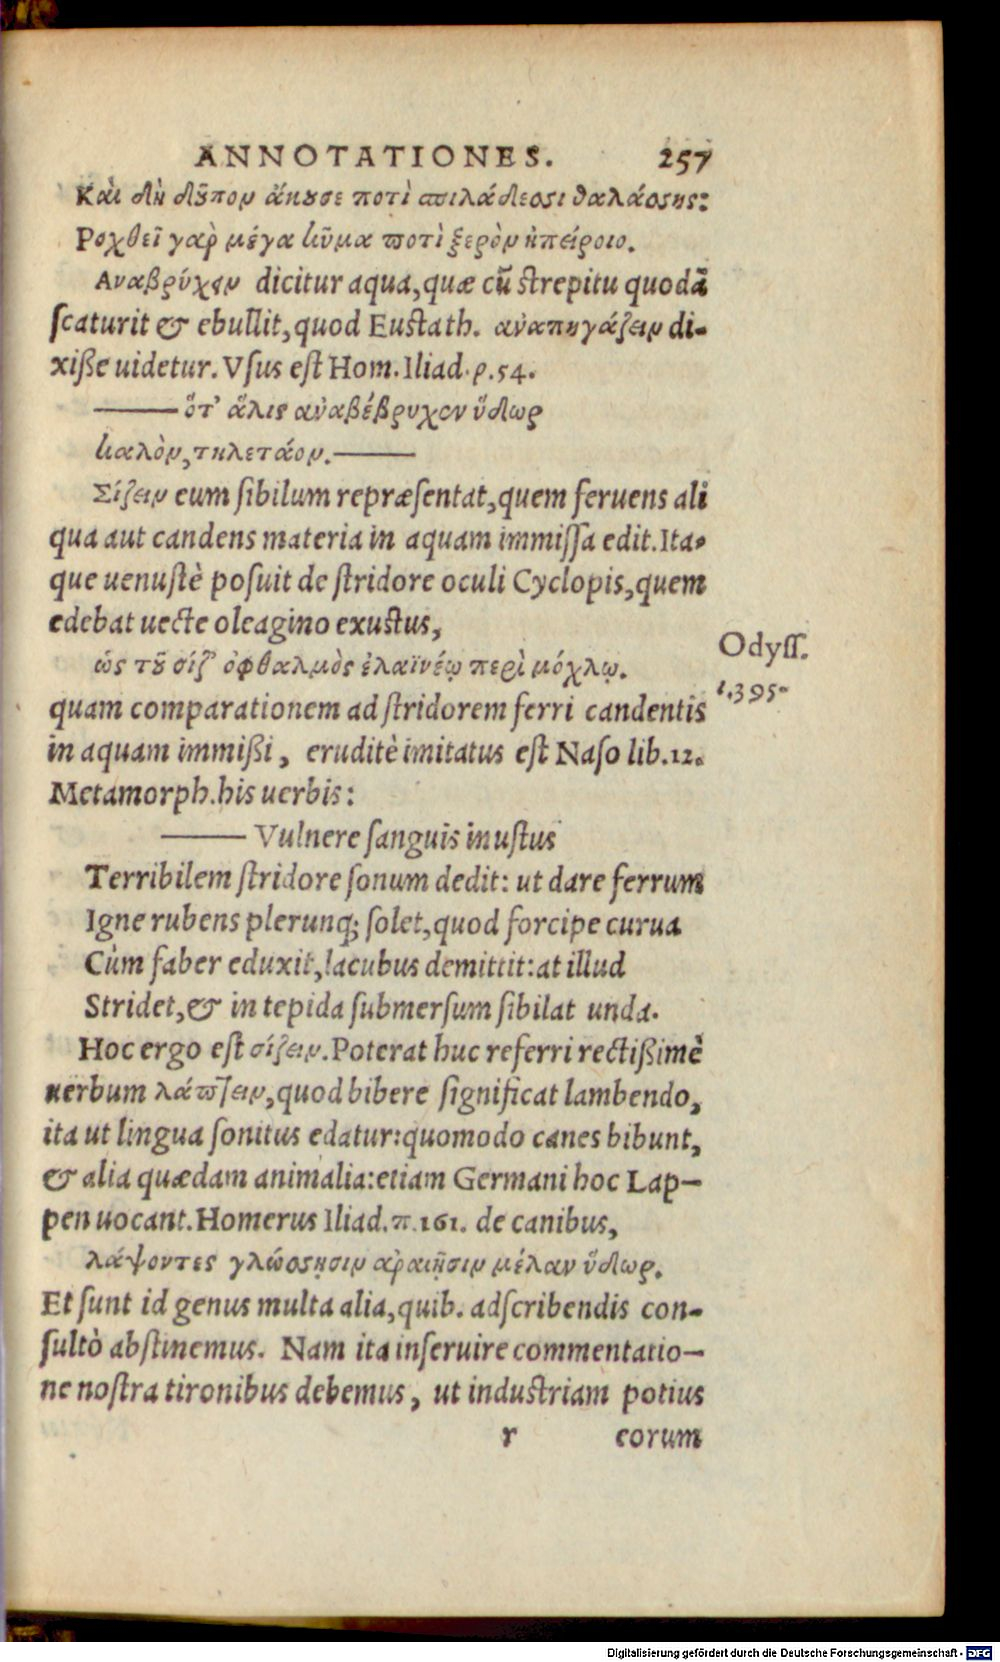 ANNOTATIONES. 257
Καὶ δὴ δοῦπον ἄκουσε ποτὶ σπιλάδεσσι θαλάσσης:
Ροχθεῖ γαρ̀ μέγα κῦμα ποτὶ ξερὸν ἠπείροιο.
Αναβρύχειν dicitur aqua, quæ cū strepitu quodā
scaturit & ebullit, quod Eustath. αναπηγάζειν di-
xiße uidetur. Vsus est Hom. Iliad. ρ. 54.
——— ὅτ' ἅλις αναβέβρυχεν ὕδωρ
καλὸν, τηλετάον. ———
Σίζειν eum sibilum repræsentat, quem feruens ali
qua aut candens materia in aquam immissa edit. Ita-
que uenustè posuit de stridore oculi Cyclopis, quem
edebat uecte oleagino exustus,
ὡς τοῦ σίζ' ὀφθαλμὸς ἐλαϊνέῳ περὶ μόχλῳ.
Odyss.
ι. 395.
quam comparationem ad stridorem ferri candentis
in aquam immißi, eruditè imitatus est Naso lib. 12.
Metamorph. his uerbis:
——— Vulnere sanguis inustus
Terribilem stridore sonum dedit: ut dare ferrum
Igne rubens plerunq; solet, quod forcipe curua
Cùm faber eduxit, lacubus demittit: at illud
Stridet, & in tepida submersum sibilat unda.
Hoc ergo est σίζειν. Poterat huc referri rectißimè
uerbum λάπτειν, quod bibere significat lambendo,
ita ut lingua sonitus edatur: quomodo canes bibunt,
& alia quædam animalia: etiam Germani hoc Lap-
pen uocant. Homerus Iliad. π. 161. de canibus,
λάψοντες γλώσσῃσιν αραιῇσιν μέλαν ὕδωρ.
Et sunt id genus multa alia, quib. adscribendis con-
sultò abstinemus. Nam ita inseruire commentatio-
ne nostra tironibus debemus, ut industriam potius
r eorum
Digitalisierung gefördert durch die Deutsche Forschungsgemeinschaft - DFG